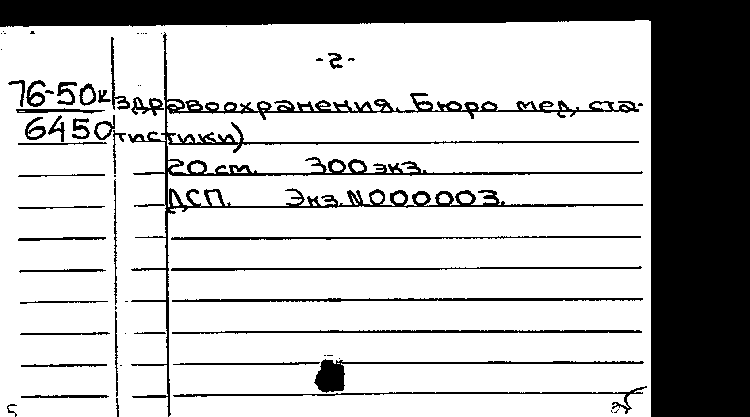 -2-
76-50к здравоохранения. Бюро мед. ста-
6450 тистики)
20 см. 300 экз.
ДСП. Экз. N000003.